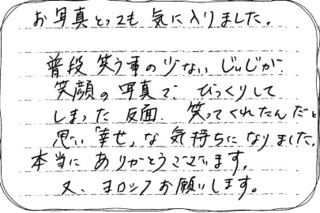 お写真とっても気に入りました。
普段笑う事の少ないじぃじが、
笑顔の写真で、びっくりして
しまった反面、笑ってくれたんだと
思い「幸せ」な気持ちになりました。
本当にありがとうございます。
又、ヨロシクお願いします。